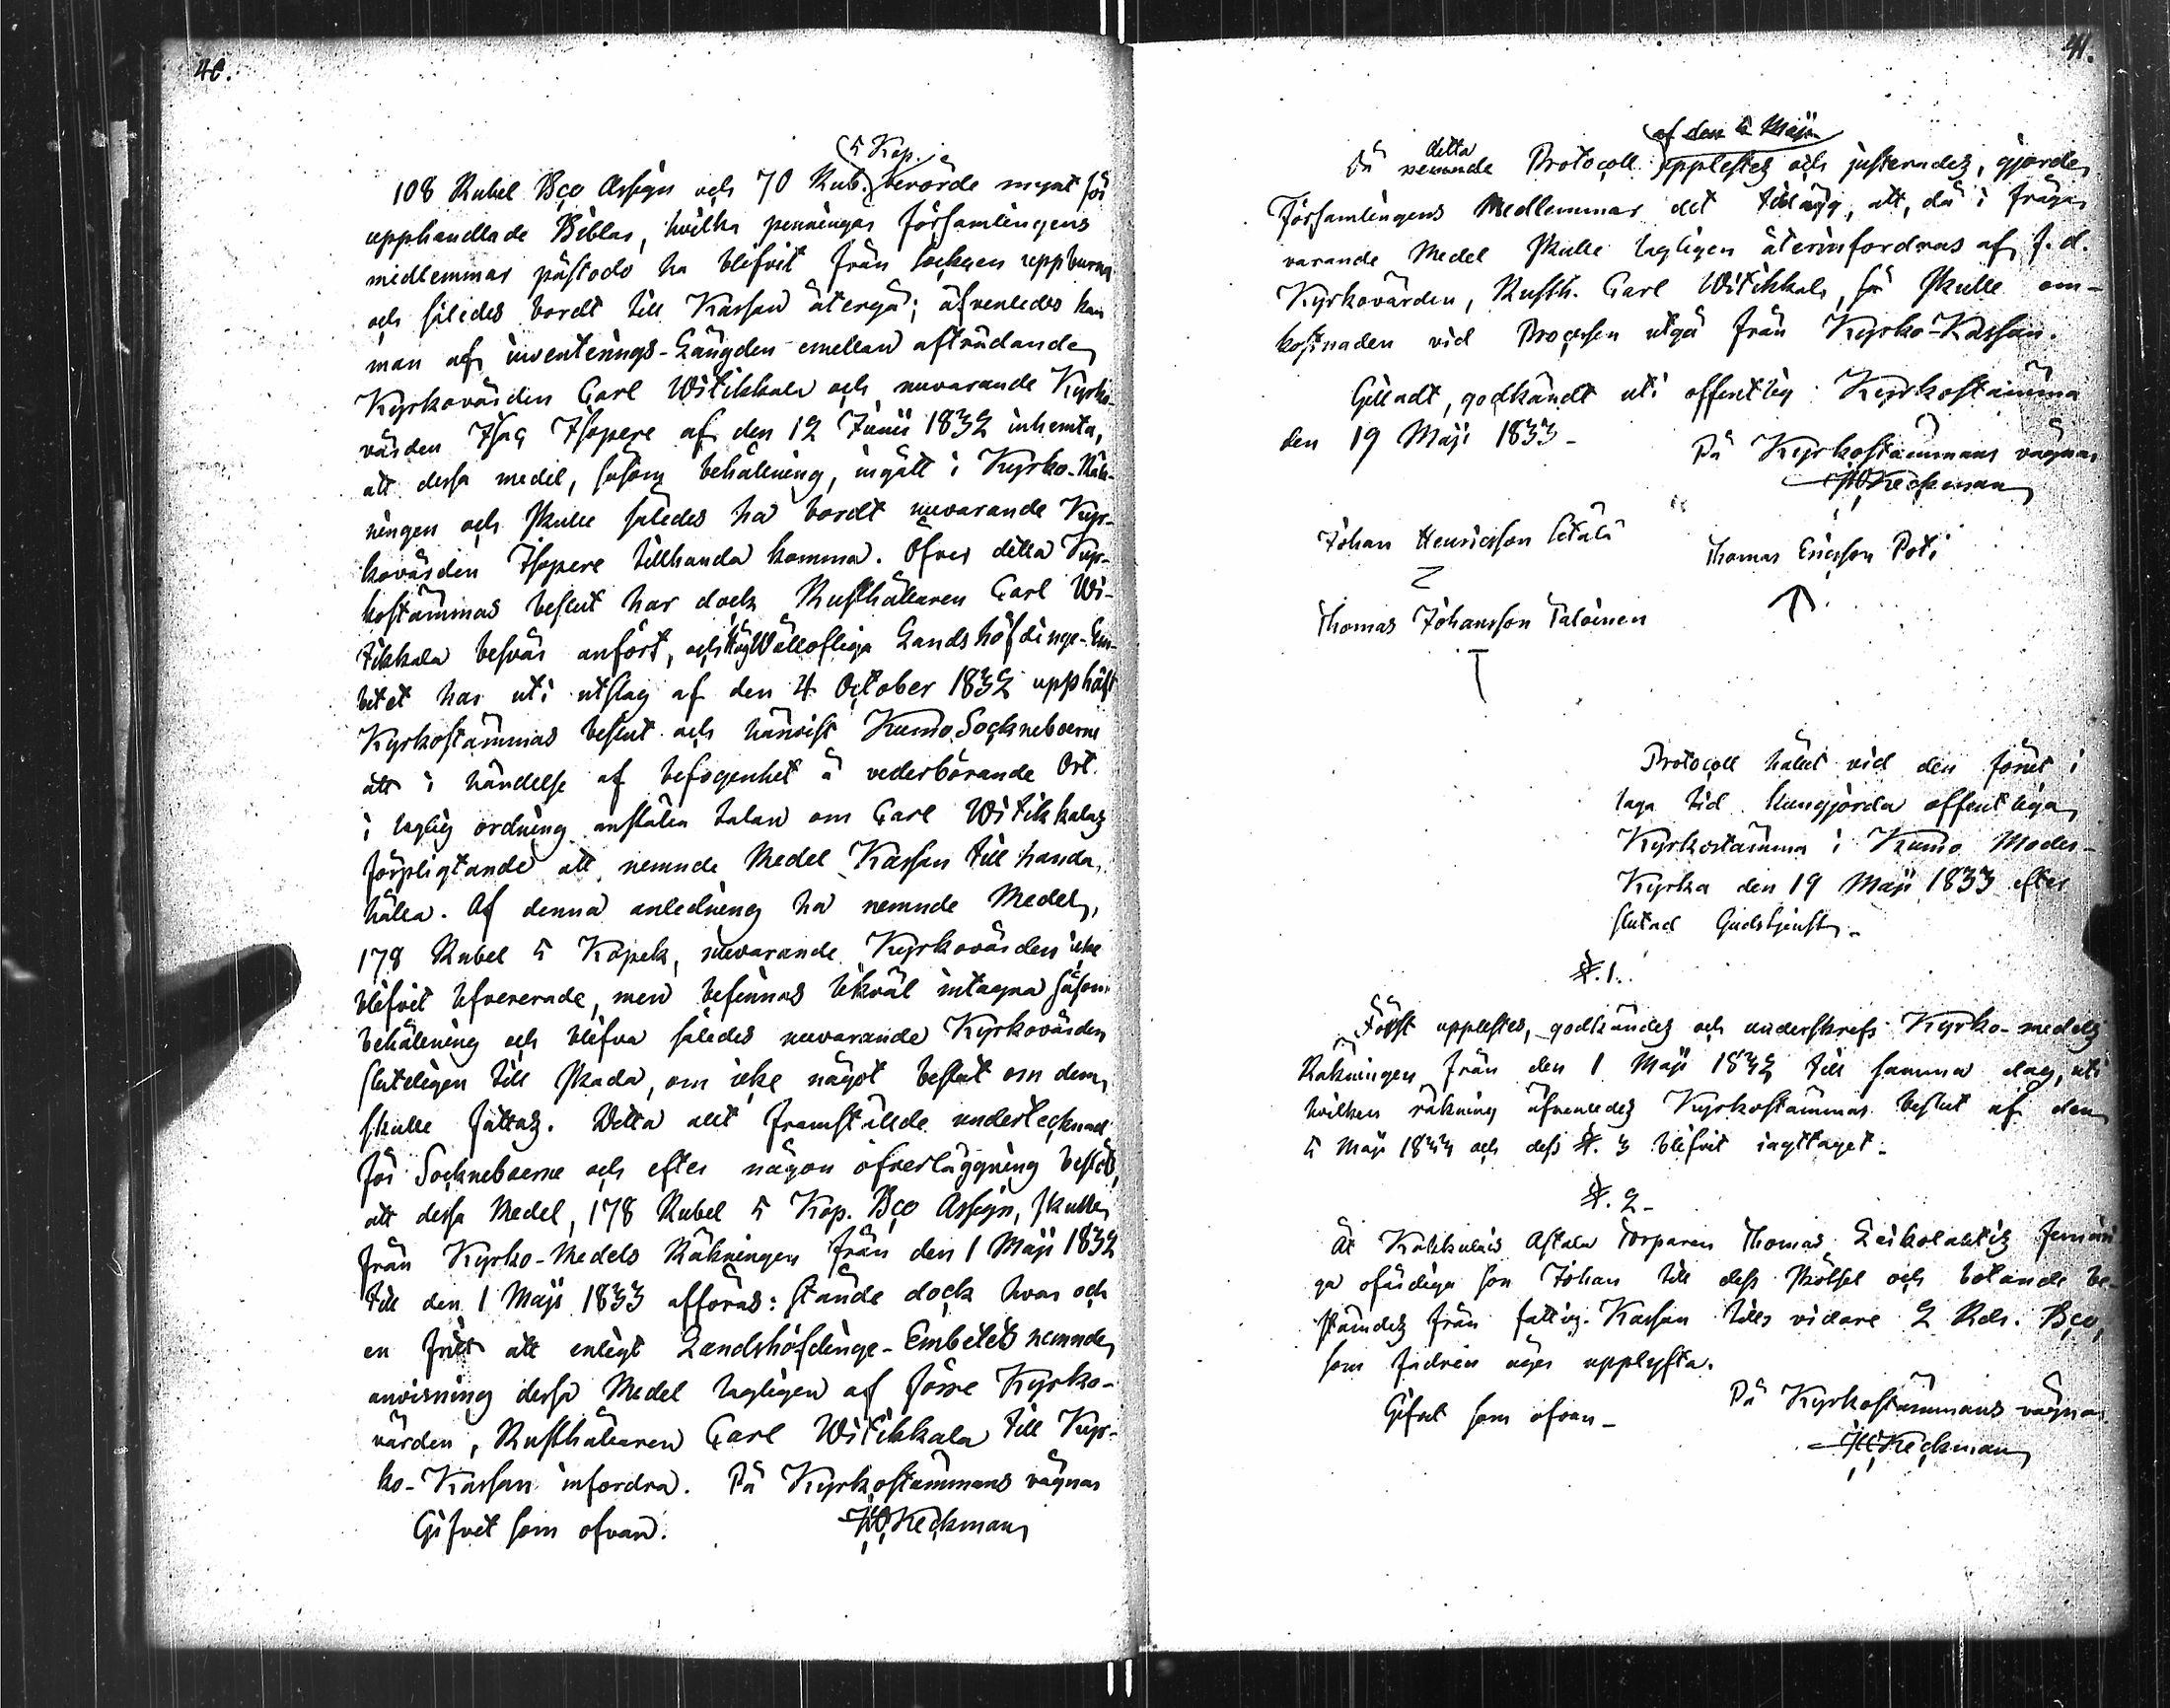 40.
5 Kop.
108 Rubel Bço Assign och 70 Rub. berörde mynt för
upphandlade Biblar, hvilka penningar församlingens
medlemmar påstodo ha blifvit från Socknen uppburna
och således bordt till Kassan återgå; äfvenledes kan
man af inventerings-Längden emellan afträdande
Kyrkovärden Carl Witikkala och nuvarande Kyrko-
värden Isaç Isopere af den 12 Junii 1832 inhemta,
att dessa medel, såsom behållning, ingått i Kyrko-Räk-
ningen och skulle således ha bordt nuvarande Kyr-
kovärden Isopere tillhanda komma. Öfver detta Kyr-
kostämmas beslut har dock Rusthållaren Carl Wi-
tikkala besvär anfört, och HögWällofliga Landshöfdinge-Em-
betet har uti utslag af den 4 October 1832 upphäft
Kyrkostämmas beslut och hänvist Kumo Sockneboerne
att i händelse af befogenhet å vederbörande Ort
i laglig ordning anställa talan om Carl Witikkalas
förpligtande att nemnde Medel Kassan till handa
hålla. Af denna anledning ha nemnde Medel,
178 Rubel 5 Kopek, nuvarande Kyrkovärden icke
blifvit lefvererade, men befinnas likväl intagna såsom
behållning och blifva således nuvarande Kyrkovärden
sluteligen till skada, om icke något beslut om dem
skulle fattas. Detta allt framställde undertecknad
för Sockneboerne och efter någon öfverläggning beslöts,
att dessa Medel, 178 Rubel 5 Kop. Bço Assign, skulle
från Kyrko-Medels Räkningen från den 1 Maji 1832
till den 1 Maji 1833 afföras: stände dock hvar och
en fritt att enligt Landshöfdinge-Embetets nemnde
anvisning dessa Medel lagligen af förre Kyrko-
värden, Rusthållaren Carl Witikkala till Kyr-
ko-Kassan infordra. På Kyrkostämmans vägnar
Gifvet som ofvan. Keckman
41.
detta af den 5 Maji
Då nemnde Protocoll upplestes och justerades, gjorde
Församlingens Medlemmar det tillägg, att, då i fråga
varande Medel skulle lagligen återinfordras af f.d.
Kyrkovärden, Rusth. Carl Witikkala, så skulle om-
kostnaden vid Processen utgå från Kyrko-Kassan.
Gilladt, godkändt uti offentlig Kyrkostämma
den 19 Maji 1833 – På Kyrkostämmans vägnar
Keckman
Johan Henricsson
Thomas Ericsson Poti
Thomas Johansson Taloinen
Protocoll hållet vid den förut i
laga tid kungjorda offentliga
Kyrkostämma i Kumo Moder-
Kyrka den 19 Maji 1833 efter
slutad Gudstjenst –
§. 1.
Först upplestes, godkändes och underskrefs Kyrko-medels
Räkningen från den 1 Maji 1832 till samma dag, uti
hvilken räkning äfvenledes Kyrkostämmas beslut af den
5 Maji 1833 och dess §. 3 blifvit iagttaget –
§. 2 –
Åt Kakkulais Astala Torparen Thomas
ga ofärdiga son Johan till dess skötsel och botande be-
ståndes från fattig-Kassan tills vidare 2 Rdr. Bço,
som fadren äger upplyfta.
Gifvet som ofvan – På Kyrkostämmans vägnar
Keckman